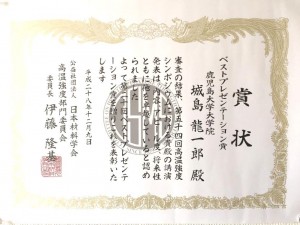 賞状
ベストプレゼンテーション賞
鹿児島大学大学院
城島 龍一郎 殿
審査の結果、第五十四回高温強度
シンポジウムにおける貴殿の講演
発表は、内容、将来性
ともに他と卓越していると認め
られました
よって第十回ベストプレゼンテ
ーション賞を贈りこれを表彰いた
します
平成二十八年十二月九日
公益社団法人 日本材料学会
高温強度部門委員会
委員長 伊藤 隆基